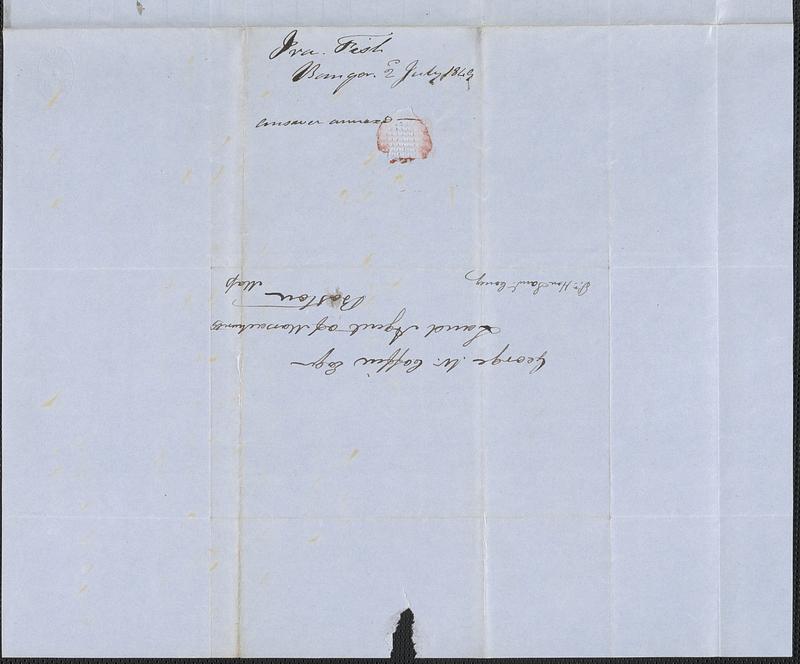 Ira. Fish
Bangor. 2 July 1849
answer annexed
George W. Coffin Esqr
Land Agent of Massachusetts
Boston
Mass
Hon Saml